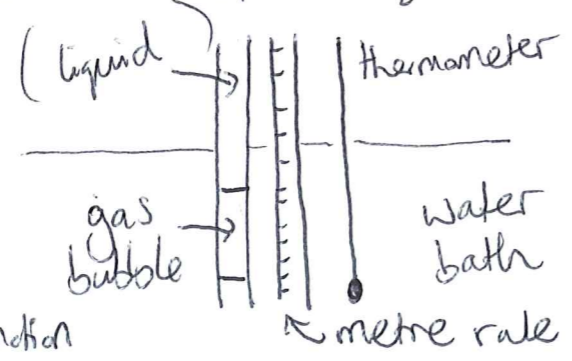 ( liquid
thermometer
gas
bubble
water
bath
metre rule